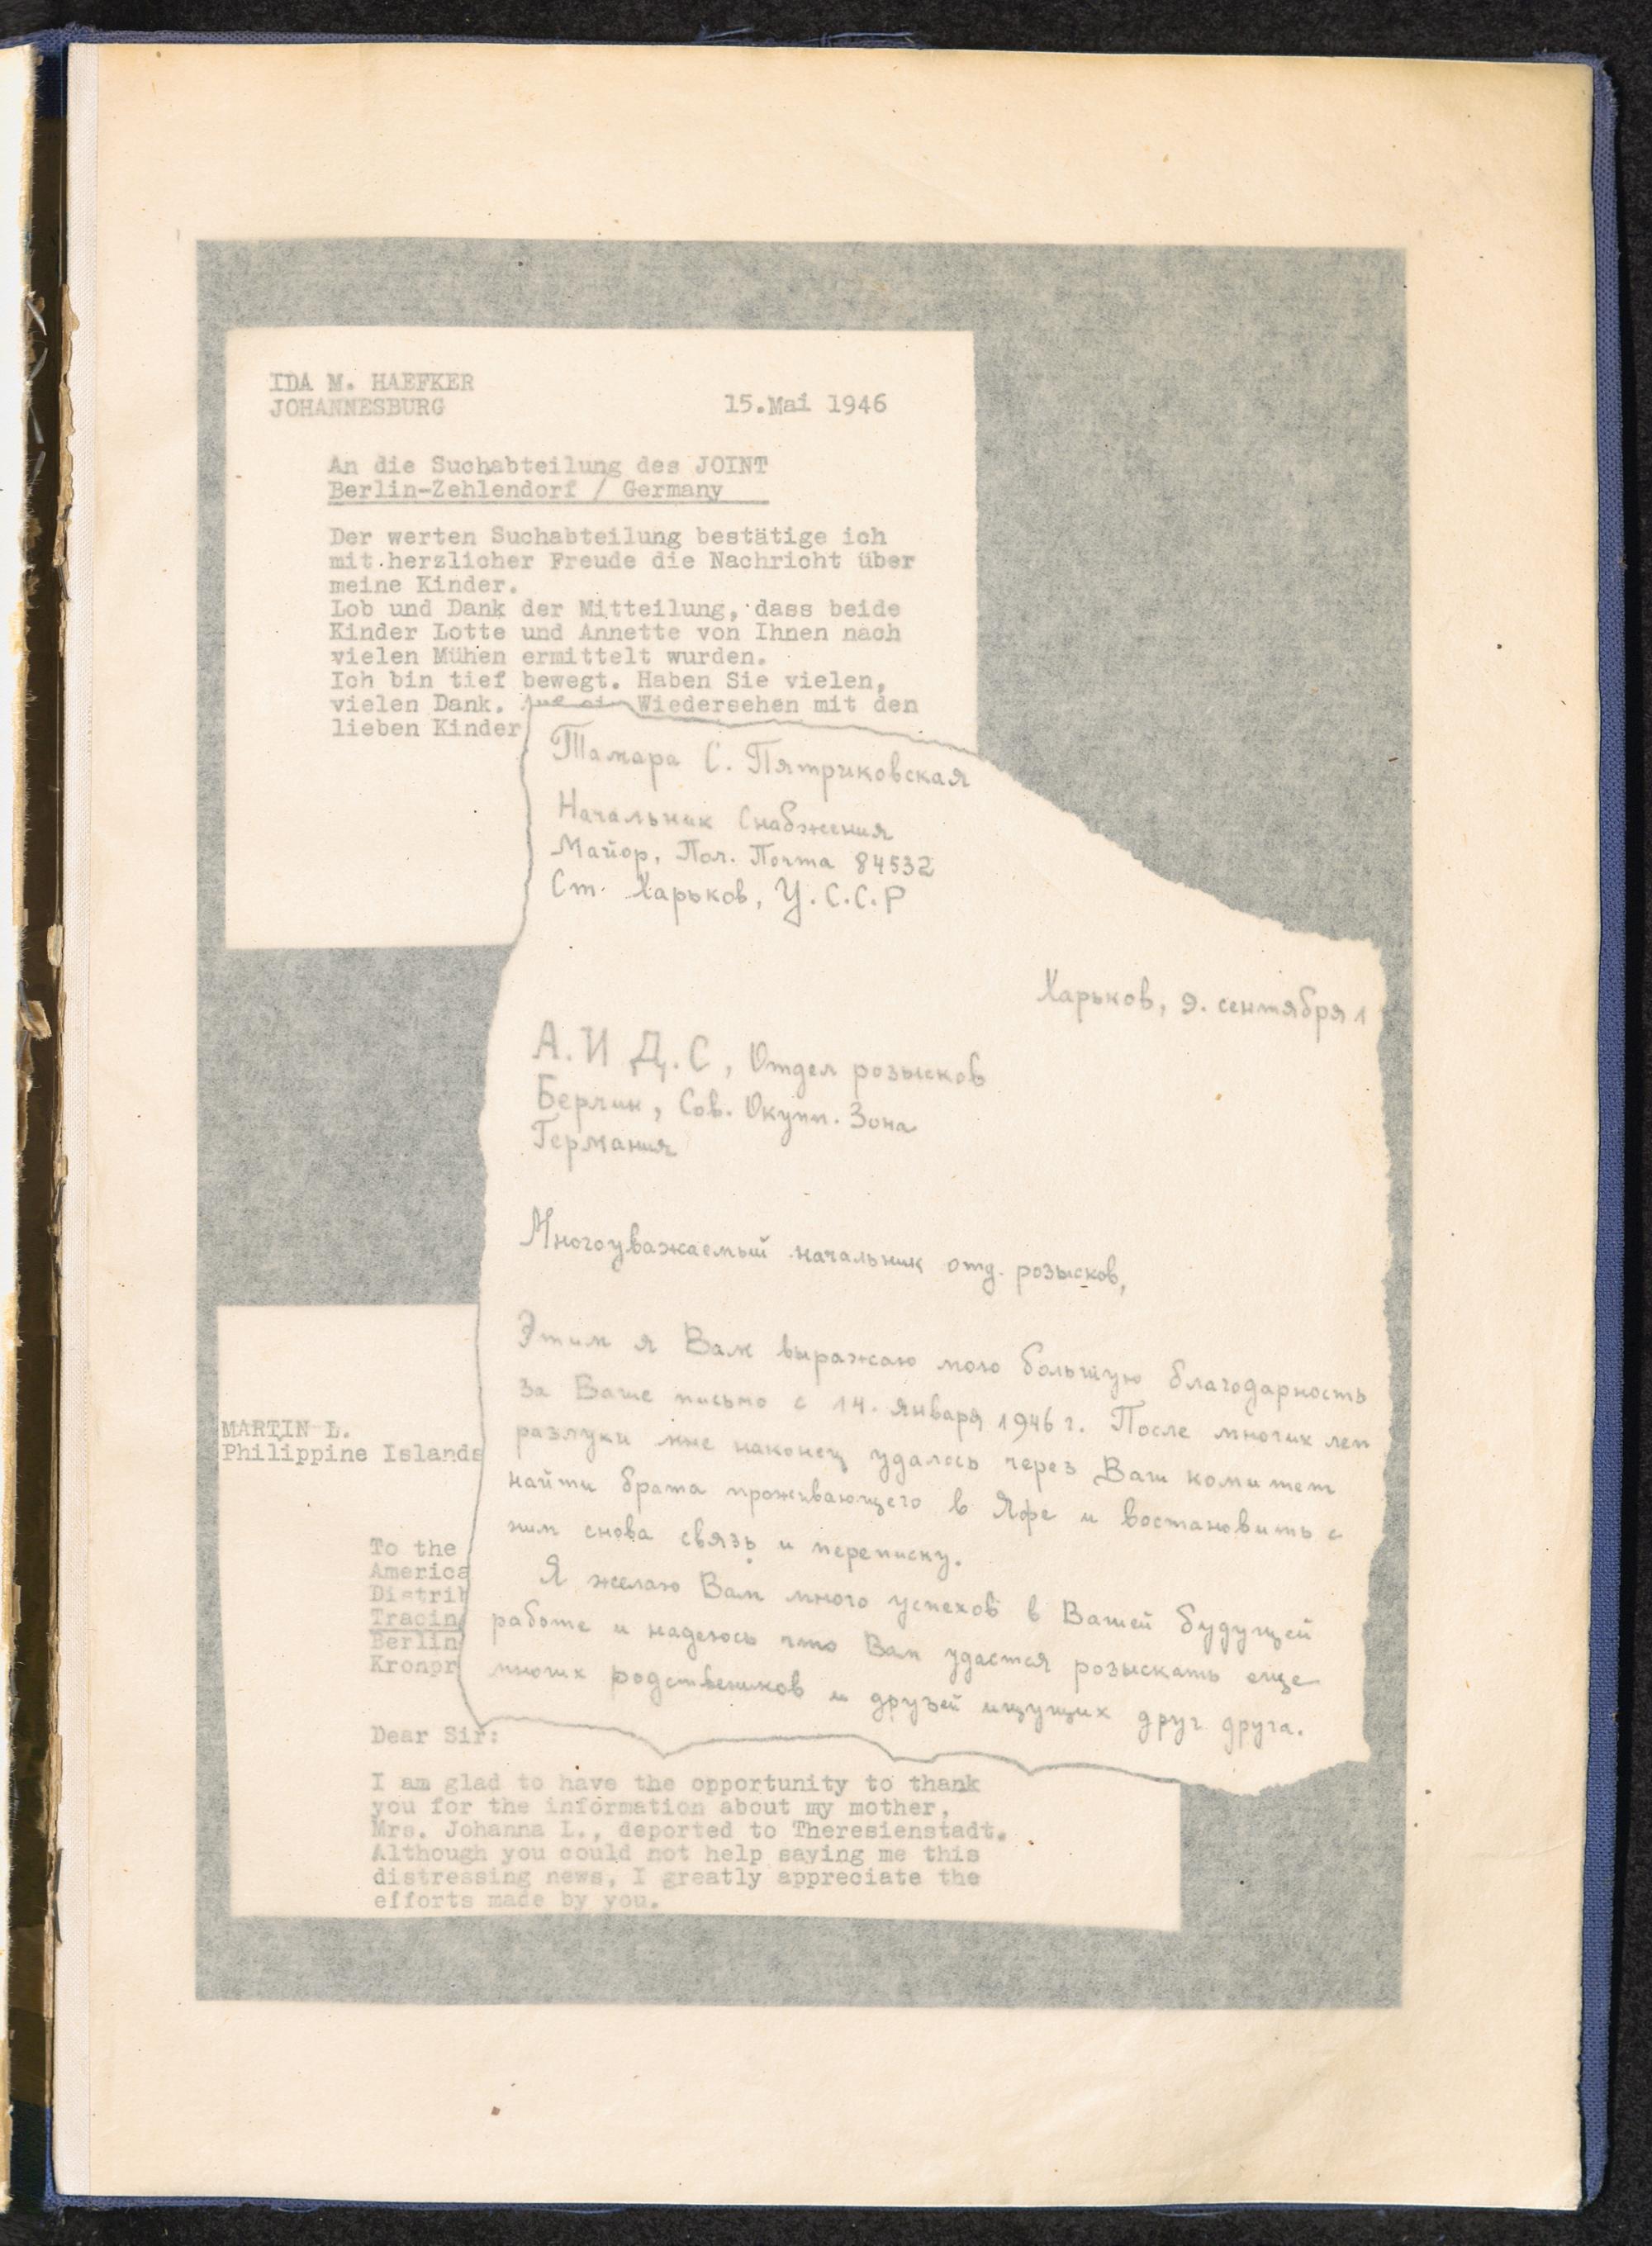 IDA M. HAEFKER
JOHANNESBURG 15.Mai 1946
An die Suchabteilung des JOINT
Berlin-Zehlendorf / Germany
Der werten Suchabteilung bestätige ich
mit herzlicher Freude die Nachricht über
meine Kinder.
Lob und Dank der Mitteilung, dass beide
Kinder Lotte und Annette von Ihnen nach
vielen Mühen ermittelt wurden.
Ich bin tief bewegt. Haben Sie vielen,
vielen Dank. Auf ein Wiedersehen mit den
lieben Kinder
Тамара С. Пятриковская
Начальник Снабжения
Майор, Пол. Почта 84532
Ст. Харьков, У.С.С.Р
Харьков, 9. сентября 1
А.И Д.С, Отдел розысков
Берлин, Сов. Окупп. Зона
Германия
Многоуважаемый начальник отд. розысков,
Этим я Вам выражаю мою большую благодарность
за Ваше письмо с 14. января 1946 г. После многих лет
разлуки мне наконец удалось через Ваш комитет
найти брата проживающего в Яфе и востановить с
ним снова связь и переписку.
Я желаю Вам много успехов в Вашей будущей
работе и надеюсь что Вам удастся розыскать еще
многих родствеников и друзей ищущих друг друга.
MARTIN L.
Philippine Islands
To the
America
Distrib
Tracin
Berlin
Kronpr
Dear Sir:
I am glad to have the opportunity to thank
you for the information about my mother,
Mrs. Johanna L., deported to Theresienstadt.
Although you could not help saying me this
distressing news, I greatly appreciate the
efforts made by you.